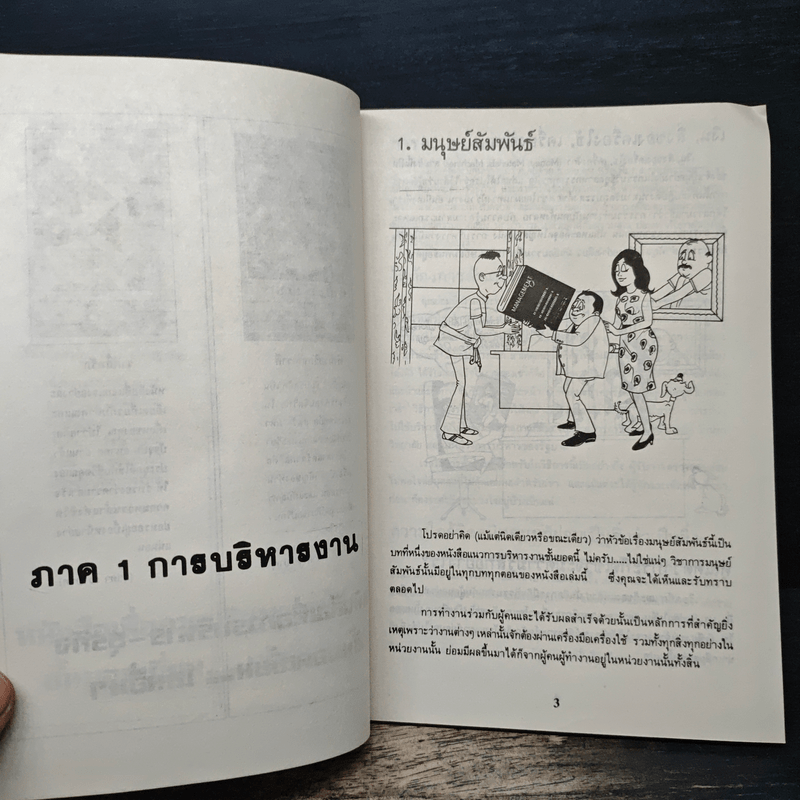 ภาค 1 การบริหารงาน
1. มนุษย์สัมพันธ์
MANAGEMENT
โปรดอย่าคิด (แม้แต่นิดเดียวหรือขณะเดียว) ว่าหัวข้อเรื่องมนุษย์สัมพันธ์นี้เป็น
บทที่หนึ่งของหนังสือแนวการบริหารงานชั้นยอดนี้ ไม่ครับ.....ไม่ใช่แน่ๆ วิชาการมนุษย์
สัมพันธ์นั้นมีอยู่ในทุกบททุกตอนของหนังสือเล่มนี้ ซึ่งคุณจะได้เห็นและรับทราบ
ตลอดไป
การทำงานร่วมกับผู้คนและได้รับผลสำเร็จด้วยนั้นเป็นหลักการที่สำคัญยิ่ง
เหตุเพราะว่างานต่างๆ เหล่านั้นจักต้องผ่านเครื่องมือเครื่องใช้ รวมทั้งทุกสิ่งทุกอย่างใน
หน่วยงานนั้น ย่อมมีผลขึ้นมาได้ก็จากผู้คนผู้ทำงานอยู่ในหน่วยงานนั้นทั้งสิ้น
3